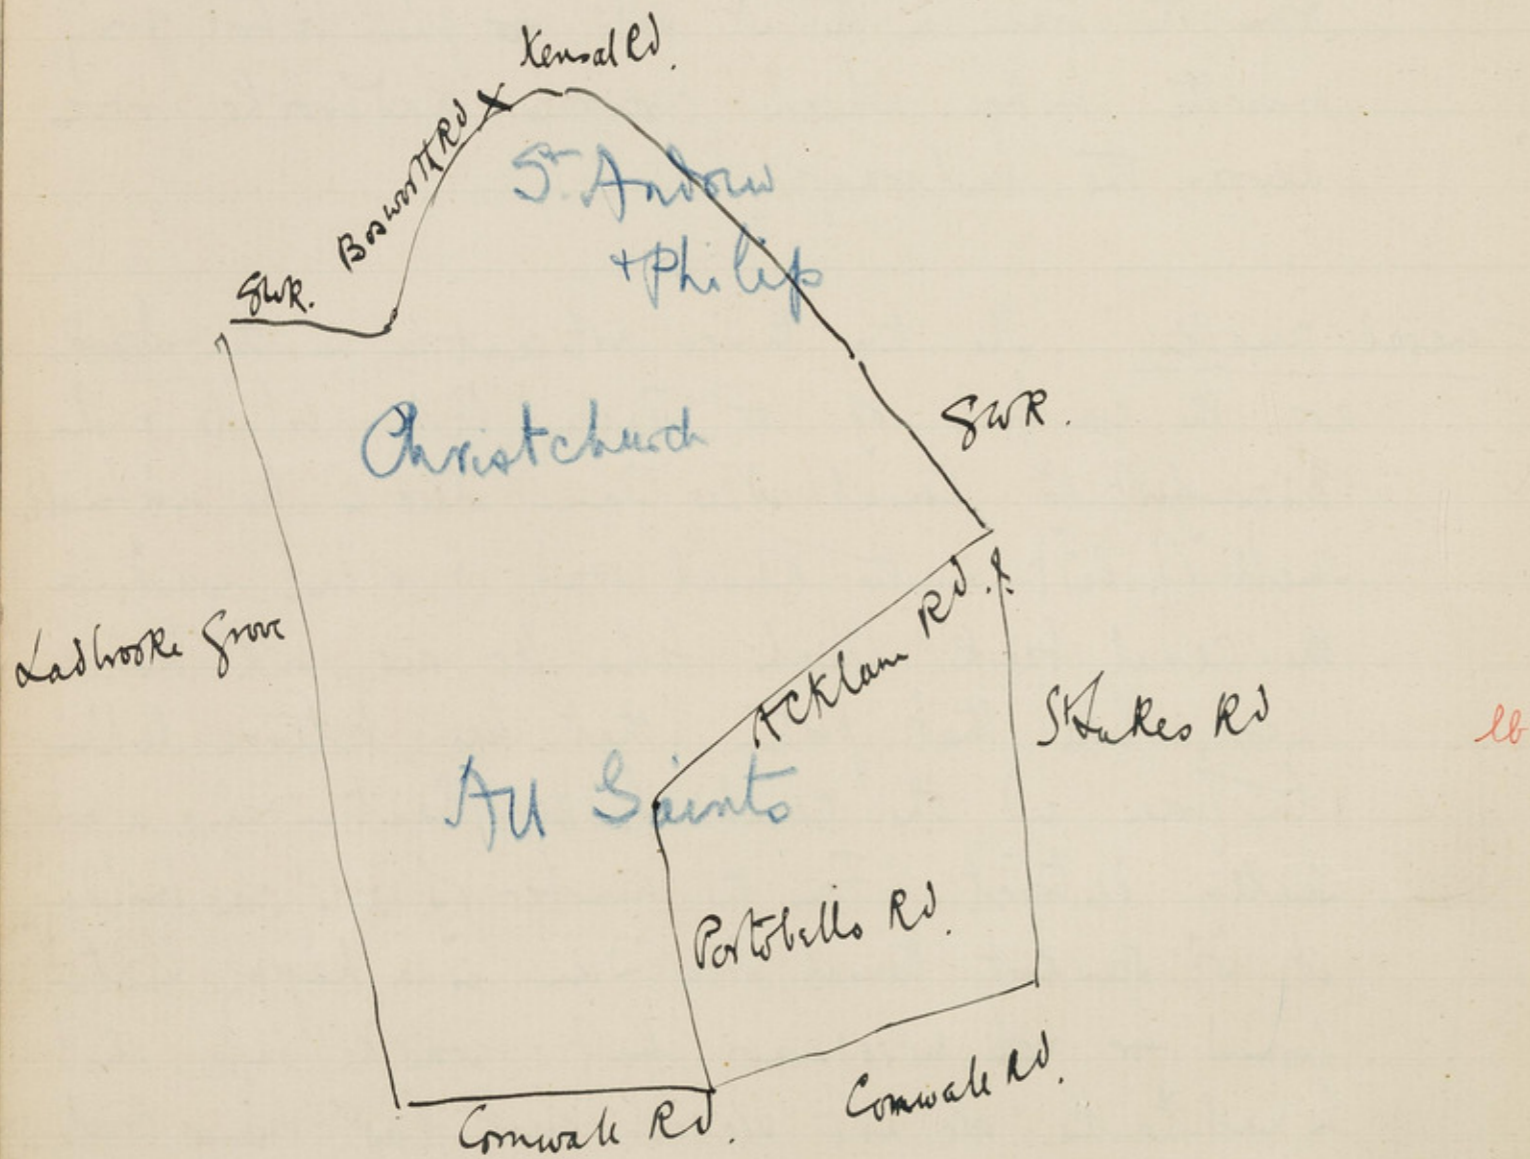 Kensal Rd.
Bosworth Rd
X
St. Andrew
+ Philip
GWR.
Christchurch
GWR.
Ladbroke Grove
Acklam Rd.
St Lukes Rd
All Saints
Portobello Rd.
Cornwall Rd.
Cornwall Rd.